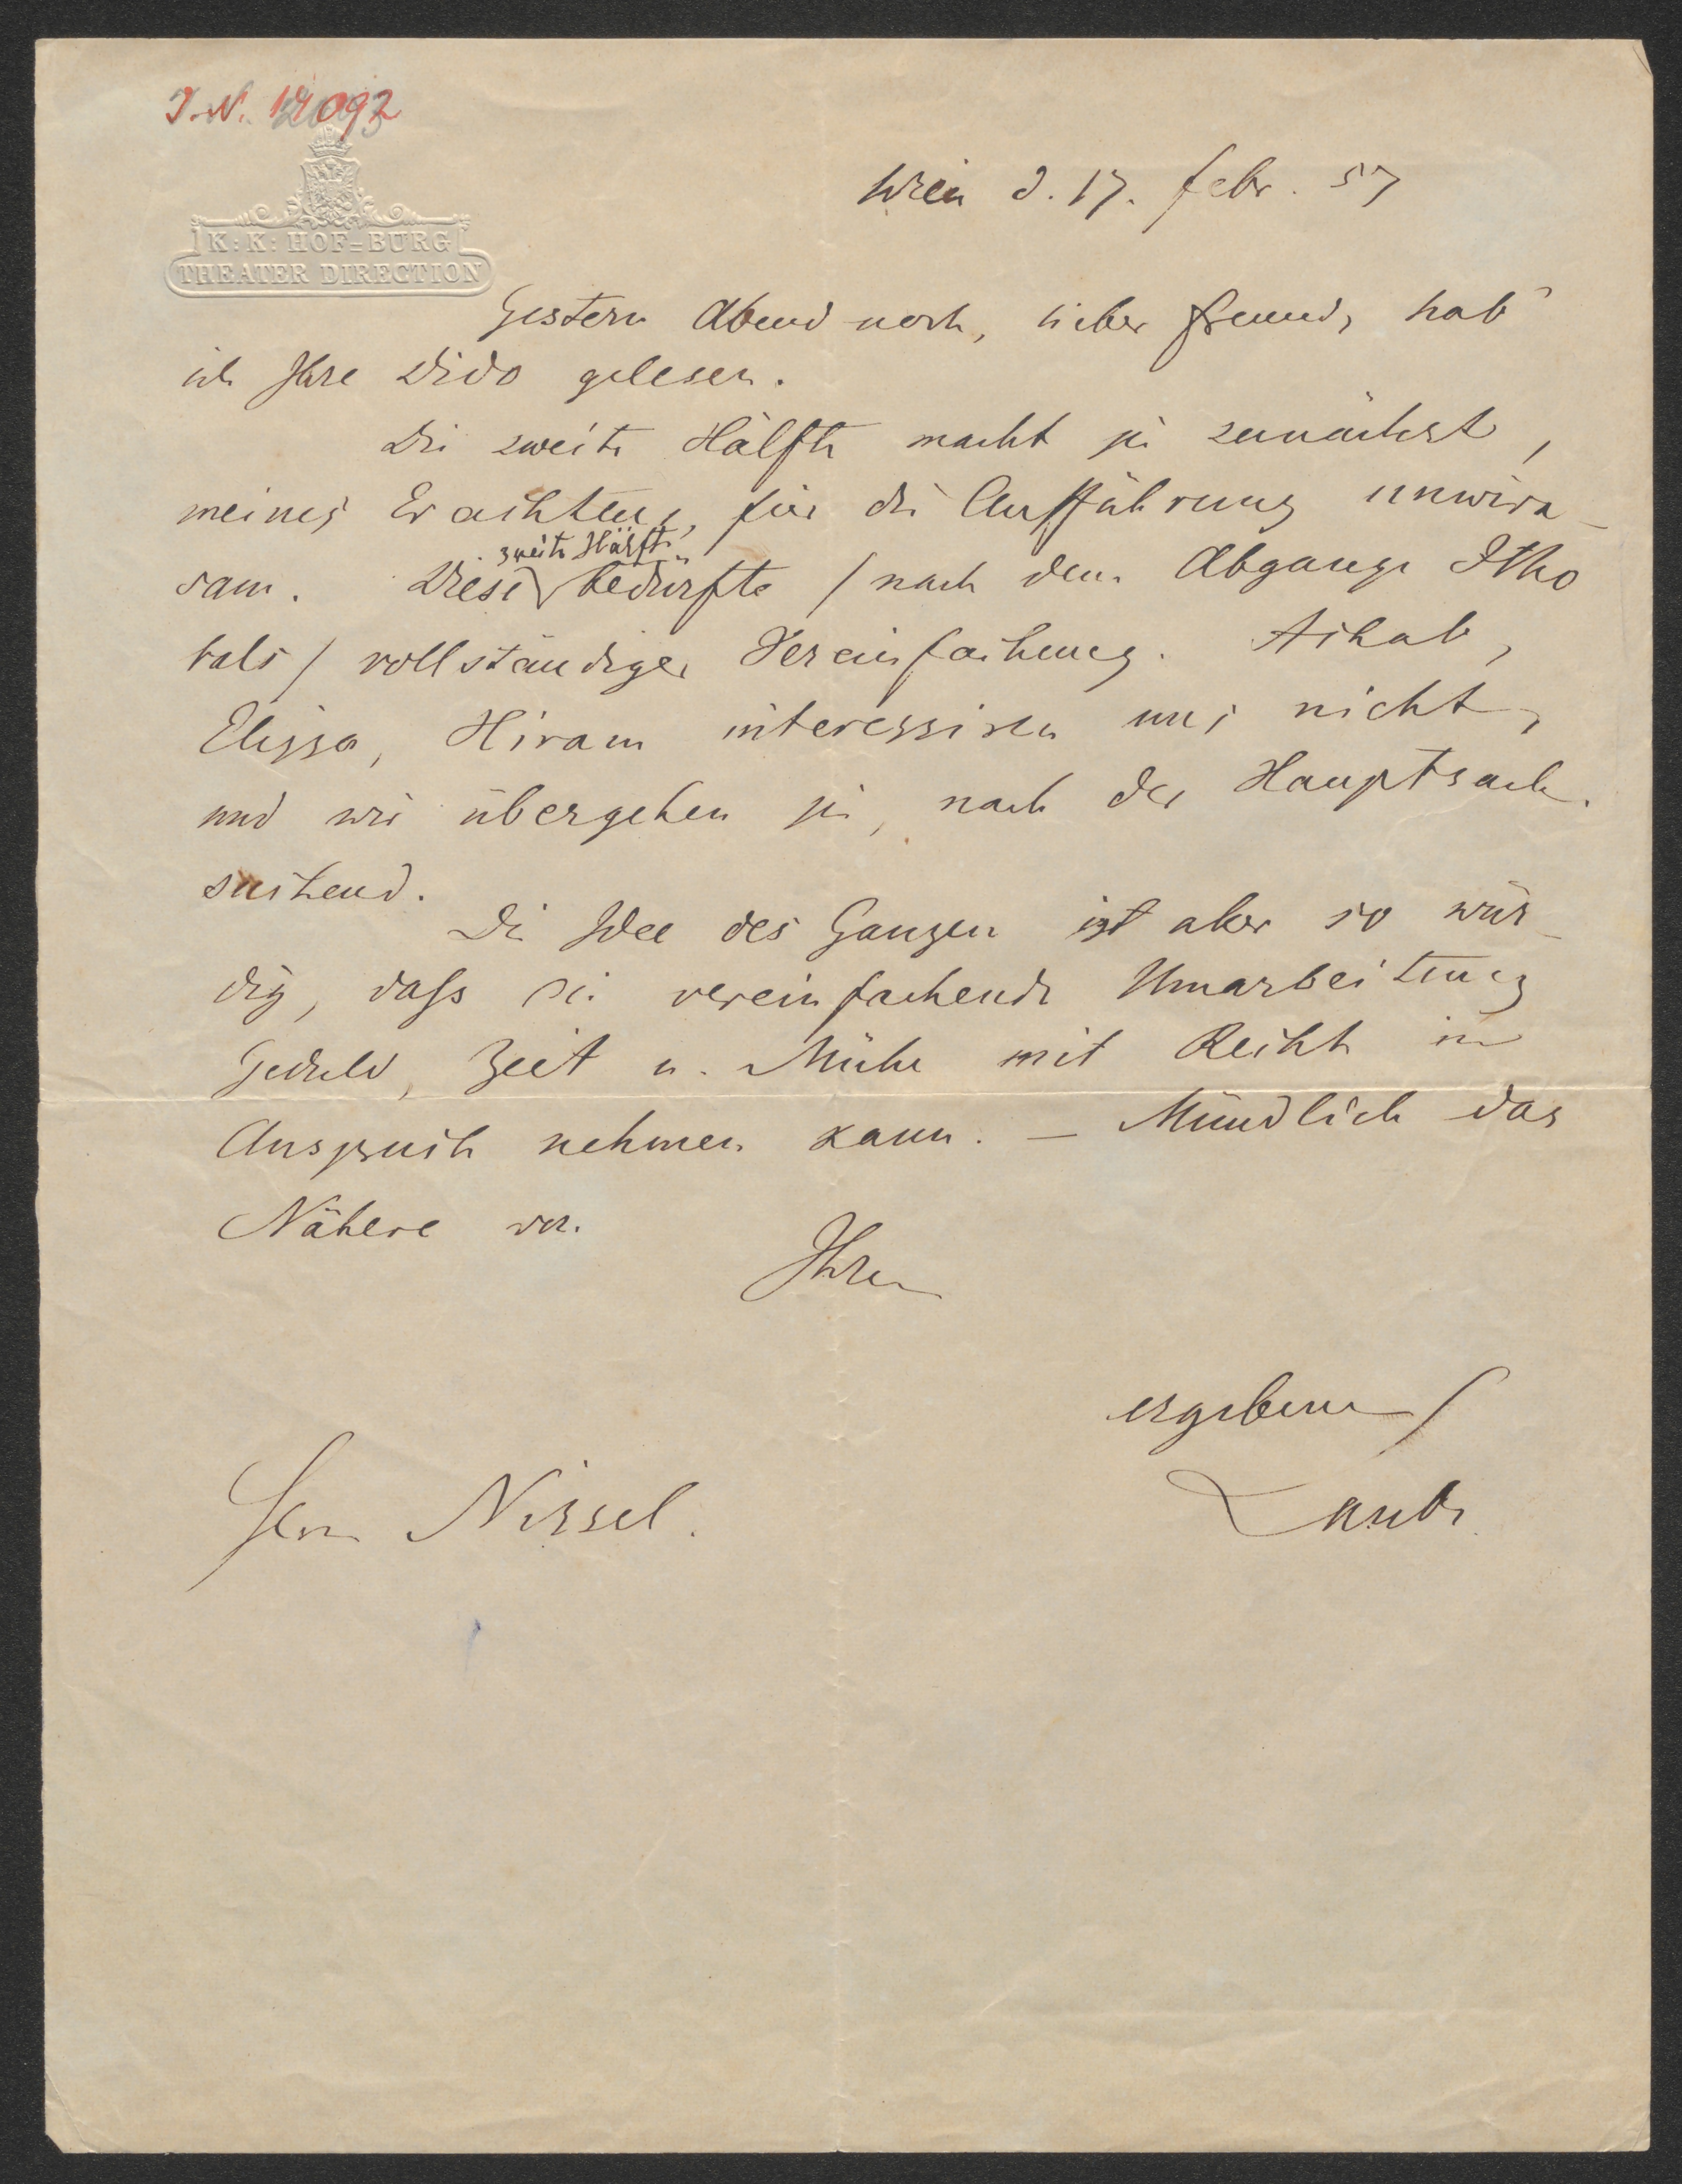 J.N. 14092
K: K: HOF=BURG
THEATER DIRECTION
Wien d. 17. febr. 57
Gestern Abend noch, lieber Freund, hab'
ich Ihre Dido gelesen.
Die zweite Hälfte macht sie zunächst,
meines Erachtens, für die Aufführung unwirk-
zweite Hälfte
sam. Diese bedürfte / nach dem Abgange Itho
bals / vollständiger Vereinfachung. Ashab,
Elissa, Hiram interessiren uns nicht,
und wir übergehen sie, nach der Hauptsache
suchend.
Die Idee des Ganzen ist aber so wür-
dig, dass sie vereinfachende Umarbeitung
Geduld, Zeit u. Mühe mit Recht in
Anspruch nehmen kann. — Mündlich das
Nähere von
Ihrem
ergebenen
Laube
Herrn Nissel.